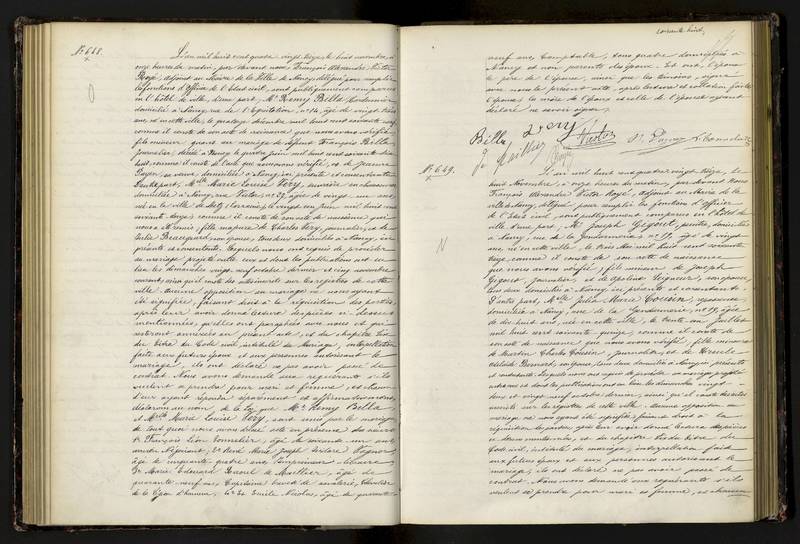 N° 648.
L'an mil huit cent quatre vingt treize, le huit novembre, à
onze heures du matin, par devant nous, François Alexandre Victor
Royé, adjoint au Maire de la Ville de Nancy, délégué pour remplir
les fonctions d'Officier de l'état civil, sont publiquement comparus
en l'hôtel de ville, d'une part, Mr Remy Billa, cordonnier
domicilié à Nancy, rue de l'Equitation, n° 14, âgé de vingt trois
ans, né en cette ville, le quatorze décembre mil huit cent soixante
comme il conste de son acte de naissance que nous avons vérifié,
fils mineur, issu du mariage de défunt François Billa
journalier, décédé à Nancy le quinze juin mil huit cent soixante
huit, comme il conste de l'acte que nous avons vérifié, et de Jeanne
sa veuve, domiciliée à Nancy, ici présente et consentante
D'autre part, Melle Marie Louise Véry, ouvrière en chaussures
domiciliée à Nancy, rue St Nicolas, n° 37, âgée de vingt un ans,
née en la ville de Metz (Lorraine) le vingt un Juin mil huit cent
soixante douze comme il conste de son acte de naissance qui
nous a été remis, fille majeure de Charles Véry, journalier, et de
Julie Beauquard, son épouse, tous deux domiciliés à Nancy, ici
présents et consentants. Lesquels nous ont requis de procéder
au mariage projeté entre eux et dont les publications ont eu
lieu les dimanches vingt neuf octobre dernier et cinq novembre
courant, ainsi qu'il conste des actes inscrits sur les registres de cette
ville. Aucune opposition au mariage ne nous ayant
été signifiée, faisant droit à la réquisition des parties,
après leur avoir donné lecture des pièces ci-dessus
mentionnées, qu'elles ont paraphées avec nous et qui
resteront annexées au présent acte, et du chapitre six
du titre du Code civil, intitulé du Mariage, interpellation
faite aux futurs époux et aux personnes autorisant le
mariage, ils ont déclaré ne pas avoir passé de
contrat. Nous avons demandé aux requérants s'ils
veulent se prendre pour mari et femme, et chacun
d'eux ayant répondu séparément et affirmativement,
déclarons au nom de la loi que Mr Remy Billa
et Melle Marie Louise Véry, sont unis par le mariage
de tout quoi nous avons dressé acte en présence des sieurs
1° François Léon Tonnelier, âgé de soixante un ans,
ancien Négociant; 2° René Marie Joseph Stislave Vagner,
âgé de cinquante quatre ans, Imprimeur-libraire,
3° Marie Edouard Benoit de Maillier, âgé de
quarante neuf ans, Capitaine breveté de cavalerie, chevalier
de la légion d'honneur, 4° St Emile Nicolas, âgé de quarante
neuf ans, Comptable, tous quatre domiciliés à
Nancy et non parents des époux. Et ont, l'époux
le père de l'épouse, ainsi que les témoins, signé
avec nous le présent acte, après lecture et collation faites
l'épouse, la mère de l'époux et celle de l'épouse ayant
déclaré ne savoir signer.
Billa Very
de Maillier
N° 649.
L'an mil huit cent quatre vingt treize, le
huit Novembre, à onze heures du matin, par devant Nous
François Alexandre Victor Royé, adjoint au Maire de la
ville de Nancy, délégué pour remplir les fonctions d'officier
de l'état civil, sont publiquement comparus en l'hôtel de
ville, d'une part, Mr Joseph Gigout, peintre, domicilié
à Nancy, rue de la Gendarmerie, n° 19, âgé de vingt
ans, né en cette ville, le trois Mai mil huit cent soixante
treize, comme il conste de son acte de naissance
que nous avons vérifié, fils mineur de Joseph
Gigout, journalier, et de Apolline Seigneur, son épouse,
tous deux domiciliés à Nancy, ici présents et consentants.
D'autre part, Melle Julia Marie Cousin, repasseuse,
domiciliée à Nancy, rue de la Gendarmerie, n° 19, âgée
de dix huit ans, née en cette ville, le trente un juillet
mil huit cent soixante quinze, comme il conste de
son acte de naissance que nous avons vérifié, fille mineure
de Martin Charles Cousin, journalier, et de Ursule
Adélaïde Bernard, son épouse, tous deux domiciliés à Nancy, ici présents
et consentants. Lesquels nous ont requis de procéder au mariage projeté
entre eux et dont les publications ont eu lieu les dimanches vingt
deux et vingt neuf octobre dernier, ainsi qu'il conste des actes
inscrits sur les registres de cette ville. Aucune opposition au
mariage ne nous ayant été signifiée, faisant droit à la
réquisition des parties, après leur avoir donné lecture des pièces
ci-dessus mentionnées, et du chapitre six du titre du
Code civil, intitulé du mariage, interpellation faite
aux futurs époux et aux personnes autorisant le
mariage, ils ont déclaré ne pas avoir passé de
contrat. Nous avons demandé aux requérants s'ils
veulent se prendre pour mari et femme, et chacun